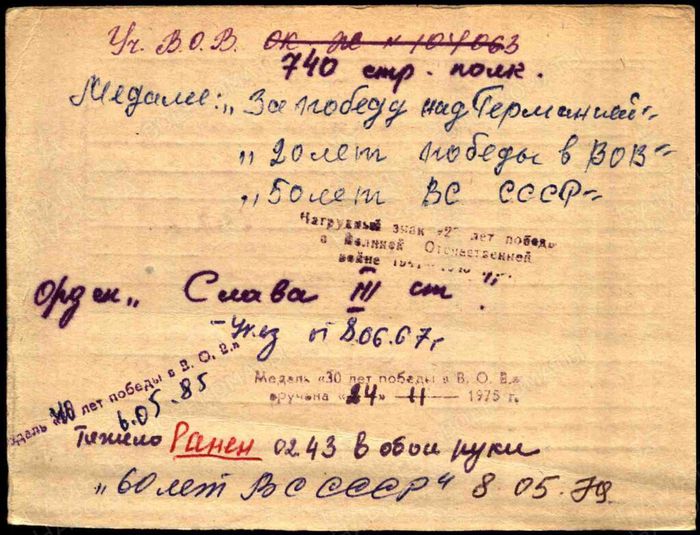 Уч. В.О.В. ок. ре № 104063
740 стр. полк.
Медали: „За победу над Германией"
„20 лет победы в ВОВ"
„50 лет ВС СССР"
Нагрудный знак «25 лет победы
в Великой Отечественной
войне
Орден „Слава III ст"
– Указ от 8.06.67 г
Медаль «40 лет победы в В. О. В.»
6.05.85
Медаль «30 лет победы в В. О. В.»
вручена «24» – II – 1975 г.
Тяжело Ранен 02.43 в обои руки
„60 лет ВС СССР" 8 05.79